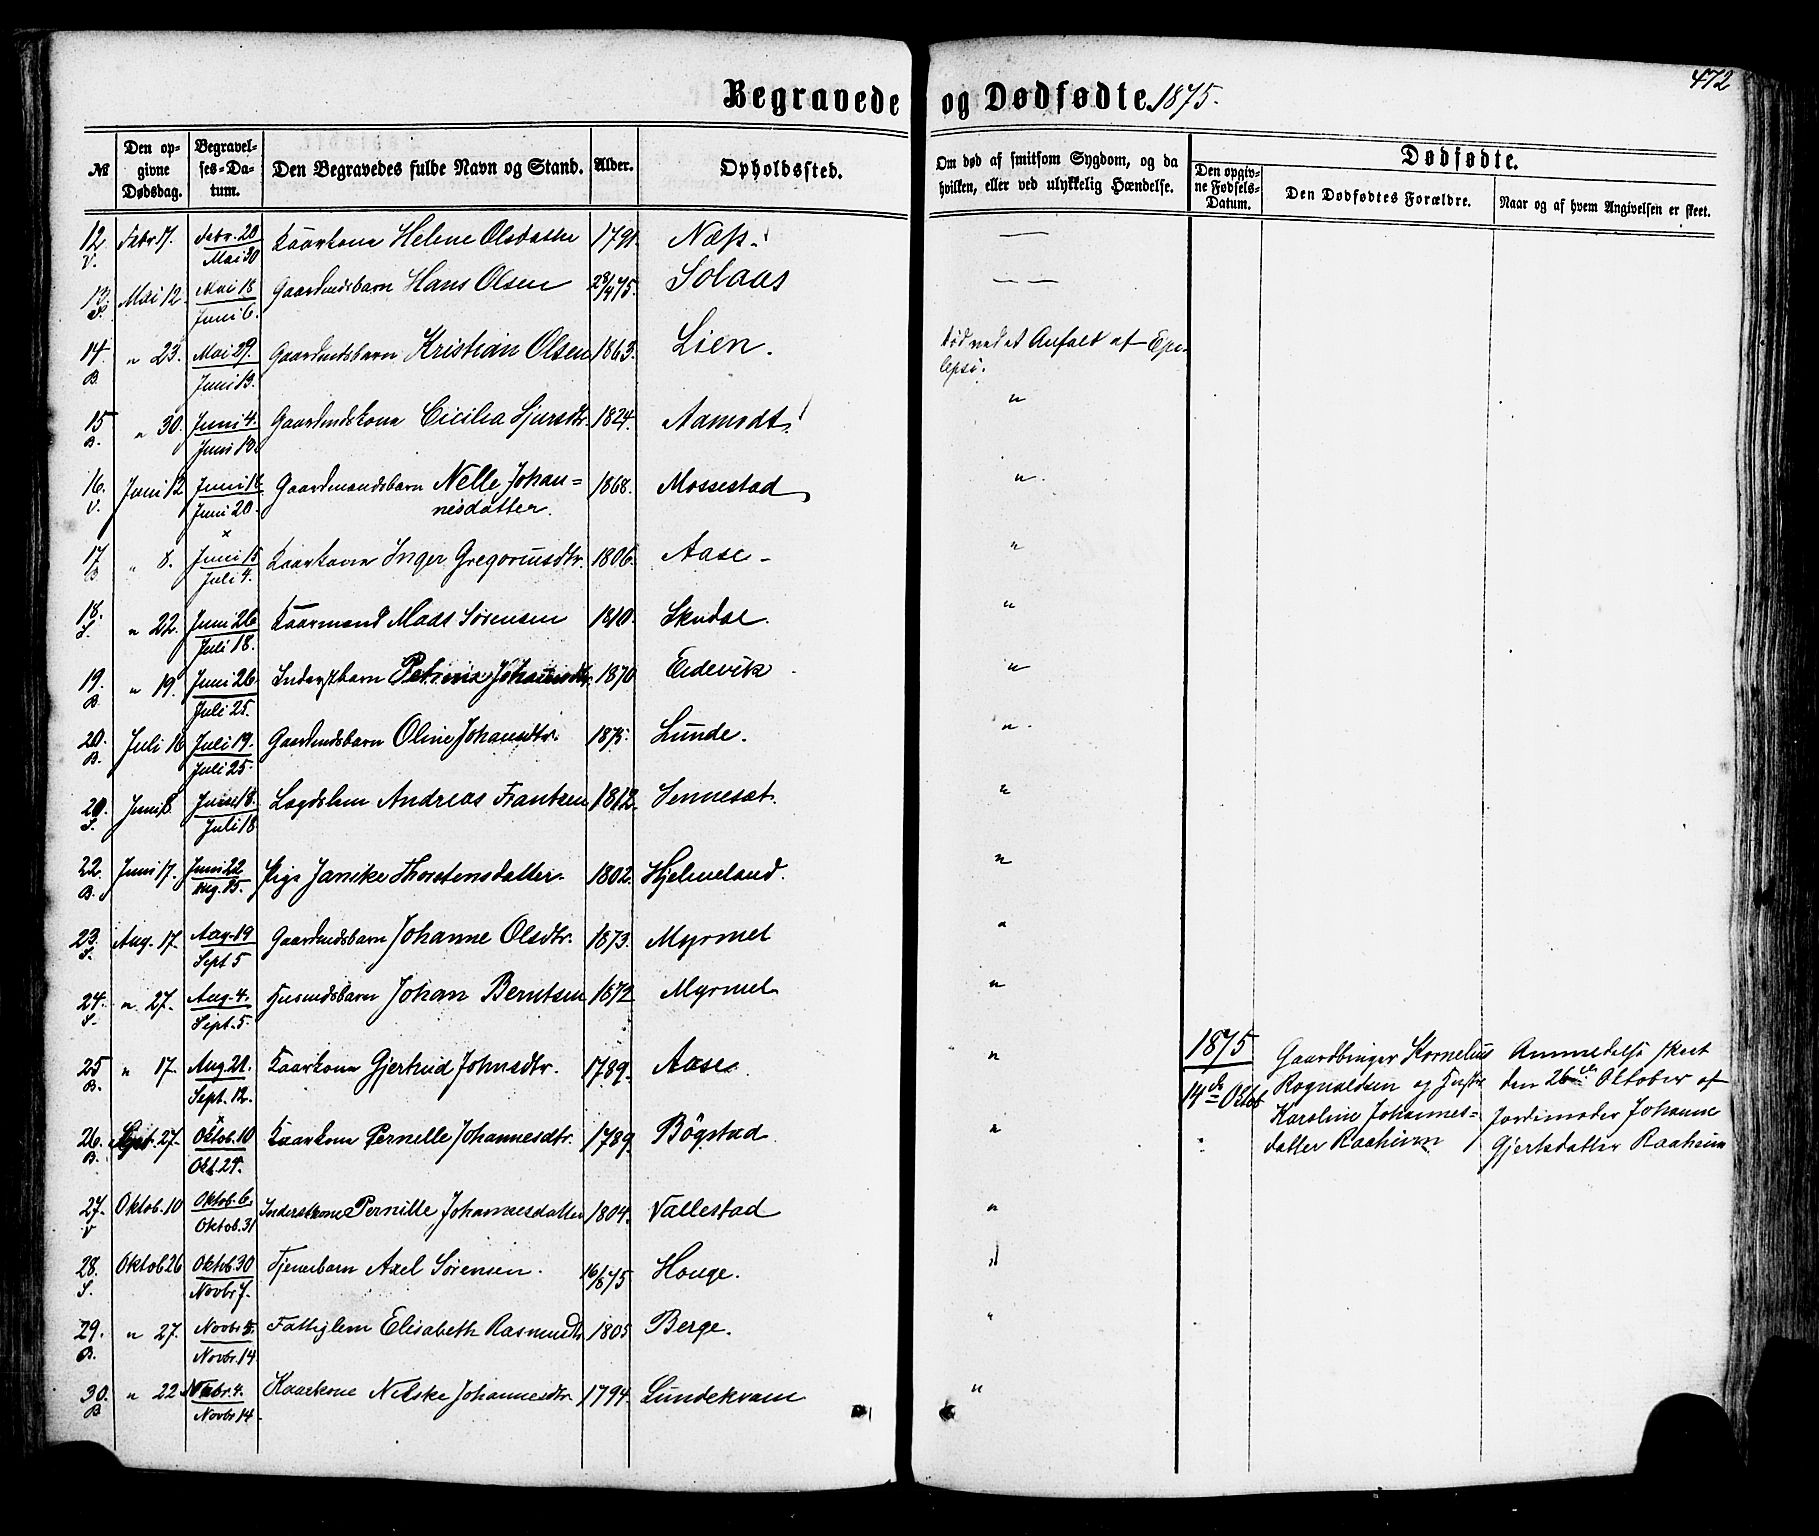 472
Begravede og Dødfødte 1875.
№ Den opgivne Dødsdag. Begravelses-Datum. Den Begravedes fulde Navn og Stand. Alder. Opholdssted. Om død af smitsom Sygdom, og da hvilken, eller ved ulykkelig Hændelse. Dødfødte. Den opgivne Fødsels-Datum. Den Dødfødtes Forældre. Naar og af hvem Angivelsen er skeet.
12. V. Febr. 17. Febr. 20 Mai 30 Kaarkone Helene Olsdatter 1791. Næss. —
13. S. Mai 12. Mai 18 Juni 6. Gaardmdsbarn Hans Olsen 28/4 75. Solaas — —
14. B. " 23. Mai 29. Juni 13. Gaardmdsbarn Kristian Olsen 1863. Lien. død ved et Anfald af Epi-
lepsi.
15 B. " 30. Juni 4. Juni 13. Gaardmdskone Cicilia Sjursdtr. 1824. Aamodt. "
16. V. Juni 12 Juni 18 Juni 20. Gaardmandsbarn Nelle Johan=
nesdatter. 1868. Mossestad "
17 B " 8. Juni 15 Juli 4. Kaarkone Inger Gregoriusdtr. 1806. Aase - "
18. S. " 22. Juni 26 Juli 18. Kaarmand Mads Sørensen 1810. Skudal. "
19. B. " 19. Juni 26. Juli 25. Inderstbarn Petrine Johannsdtr. 1870 Eidevik "
20. B. Juli 16 Juli 19. Juli 25. Gaardmdsbarn Oline Johansdtr. 1875. Lunde. "
20. S. Juni 8. Juni 18. Juli 18 Lægdslem Andreas Frantzen 1812. Sennesæt. "
22. B. Juni 17. Juni 22 Aug. 15. Pige Janike Thorstensdatter. 1802. Hjelmeland. "
23. S. Aug. 17. Aug. 19 Sept 5 Gaardmdsbarn Johanne Olsdtr. 1873. Myrmel "
24. S. " 27. Aug. 4. Sept. 5. Husmdsbarn Johan Berntsen 1872 Myrmel "
25 B. " 17. Aug. 21. Sept. 12. Kaarkone Gjertrud Johnsdtr. 1789. Aase. "
1875
14de Oktob
Gaardbruger Kornelius
Rognaldsen og Hustr.
Karoline Johannes-
datter Raaheim
Anmeldelse skeet
den 26de Oktober af
Jordmoder Johanne
Gjertsdatter Raaheim
26. B. Sept. 27. Oktob. 10 Okt. 24. Kaarkone Pernelle Johannesdtr. 1789. Bögstad "
27. V Oktob. 10 Oktob. 6. Oktob. 31 Inderstkone Pernille Johannesdatter 1804. Vallestad "
28. S. Oktob 26 Oktb. 30 Novbr 7. Tjenerbarn Axel Sørensen. 16/8 75 Houge. "
29. B. " 27. Novbr 5. Novbr. 14 Fattiglem Elisabeth Rasmusdtr 1805 Berge. "
30. B " 22 Novbr. 4. Novbr 14. Kaarkone Nilske Johannesdtr. 1794. Lundekvam "